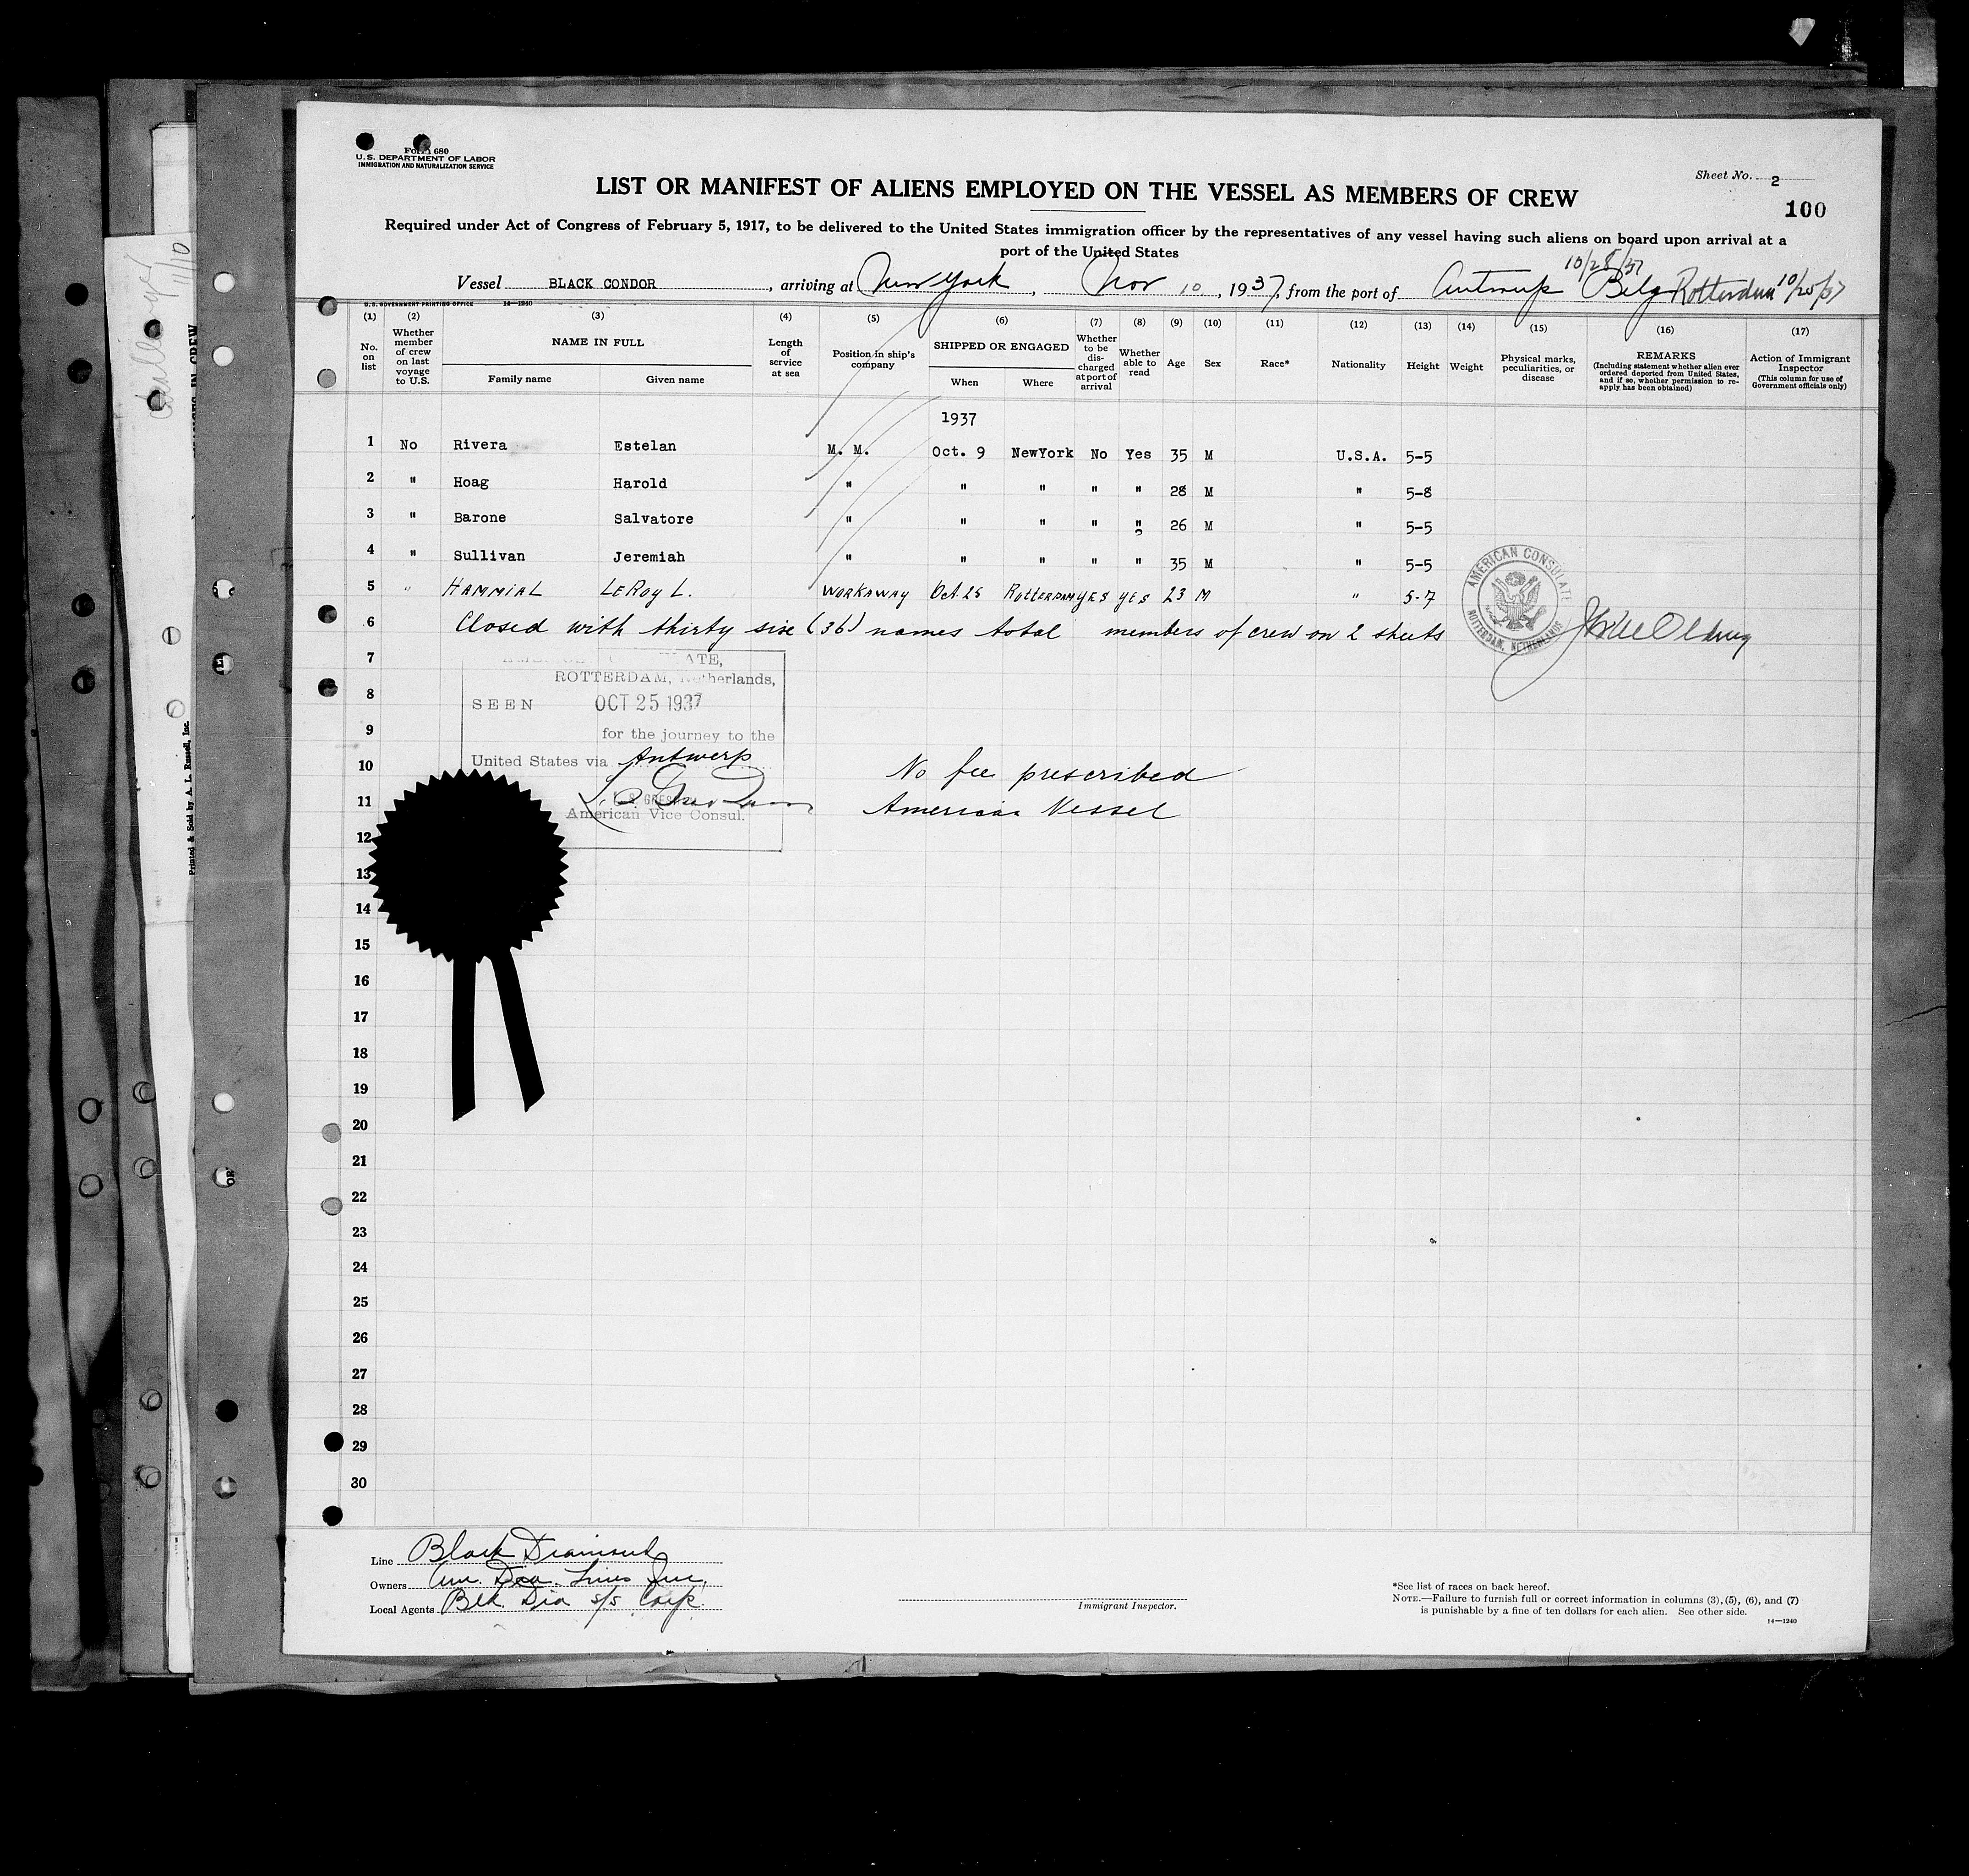 Form 680
U. S. DEPARTMENT OF LABOR
IMMIGRATION AND NATURALIZATION SERVICE
Sheet No. 2
100
LIST OR MANIFEST OF ALIENS EMPLOYED ON THE VESSEL AS MEMBERS OF CREW
Required under Act of Congress of February 5, 1917, to be delivered to the United States immigration officer by the representatives of any vessel having such aliens on board upon arrival at a
port of the United States
10/28/37
Vessel BLACK CONDOR, arriving at New York, Nov 10, 1937, from the port of Antwerp Belg Rotterdam 10/25/37
U. S. GOVERNMENT PRINTING OFFICE 14—1240
(1) (2) (3) (4) (5) (6) (7) (8) (9) (10) (11) (12) (13) (14) (15) (16) (17)
No. on list
Whether member of crew on last voyage to U.S.
NAME IN FULL
Family name Given name
Length of service at sea
Position in ship's company
SHIPPED OR ENGAGED
When Where
Whether to be discharged at port of arrival
Whether able to read
Age Sex Race* Nationality Height Weight
Physical marks, peculiarities, or disease
REMARKS
(Including statement whether alien ever ordered deported from United States, and if so, whether permission to reapply has been obtained)
Action of Immigrant Inspector
(This column for use of Government officials only)
1937
1 No Rivera Estelan M. M. Oct. 9 NewYork No Yes 35 M U.S.A. 5-5
2 " Hoag Harold " " " " " 28 M " 5-8
3 " Barone Salvatore " " " " " 26 M " 5-5
4 " Sullivan Jeremiah " " " " " 35 M " 5-5
5 " HAMMIAL LEROY L. WORKAWAY Oct 25 ROTTERDAM YES YES 23 M " 5-7
6 Closed with thirty six (36) names total members of crew on 2 sheets
AMERICAN CONSULATE
ROTTERDAM, NETHERLANDS
7 ATE,
ROTTERDAM, Netherlands,
8 SEEN OCT 25 1937
9 for the journey to the
United States via Antwerp
10 No fee prescribed
11 American Vessel
American Vice Consul.
12
13
14
15
16
17
18
19
20
21
22
23
24
25
26
27
28
29
30
Line Black Diamond
Owners Am. Dia. Lines Inc.
Local Agents Blk. Dia S/S Corp.
Immigrant Inspector.
*See list of races on back hereof.
NOTE.—Failure to furnish full or correct information in columns (3), (5), (6), and (7)
is punishable by a fine of ten dollars for each alien. See other side.
14—1240
Printed & Sold by A. L. Russell, Inc.
11/10